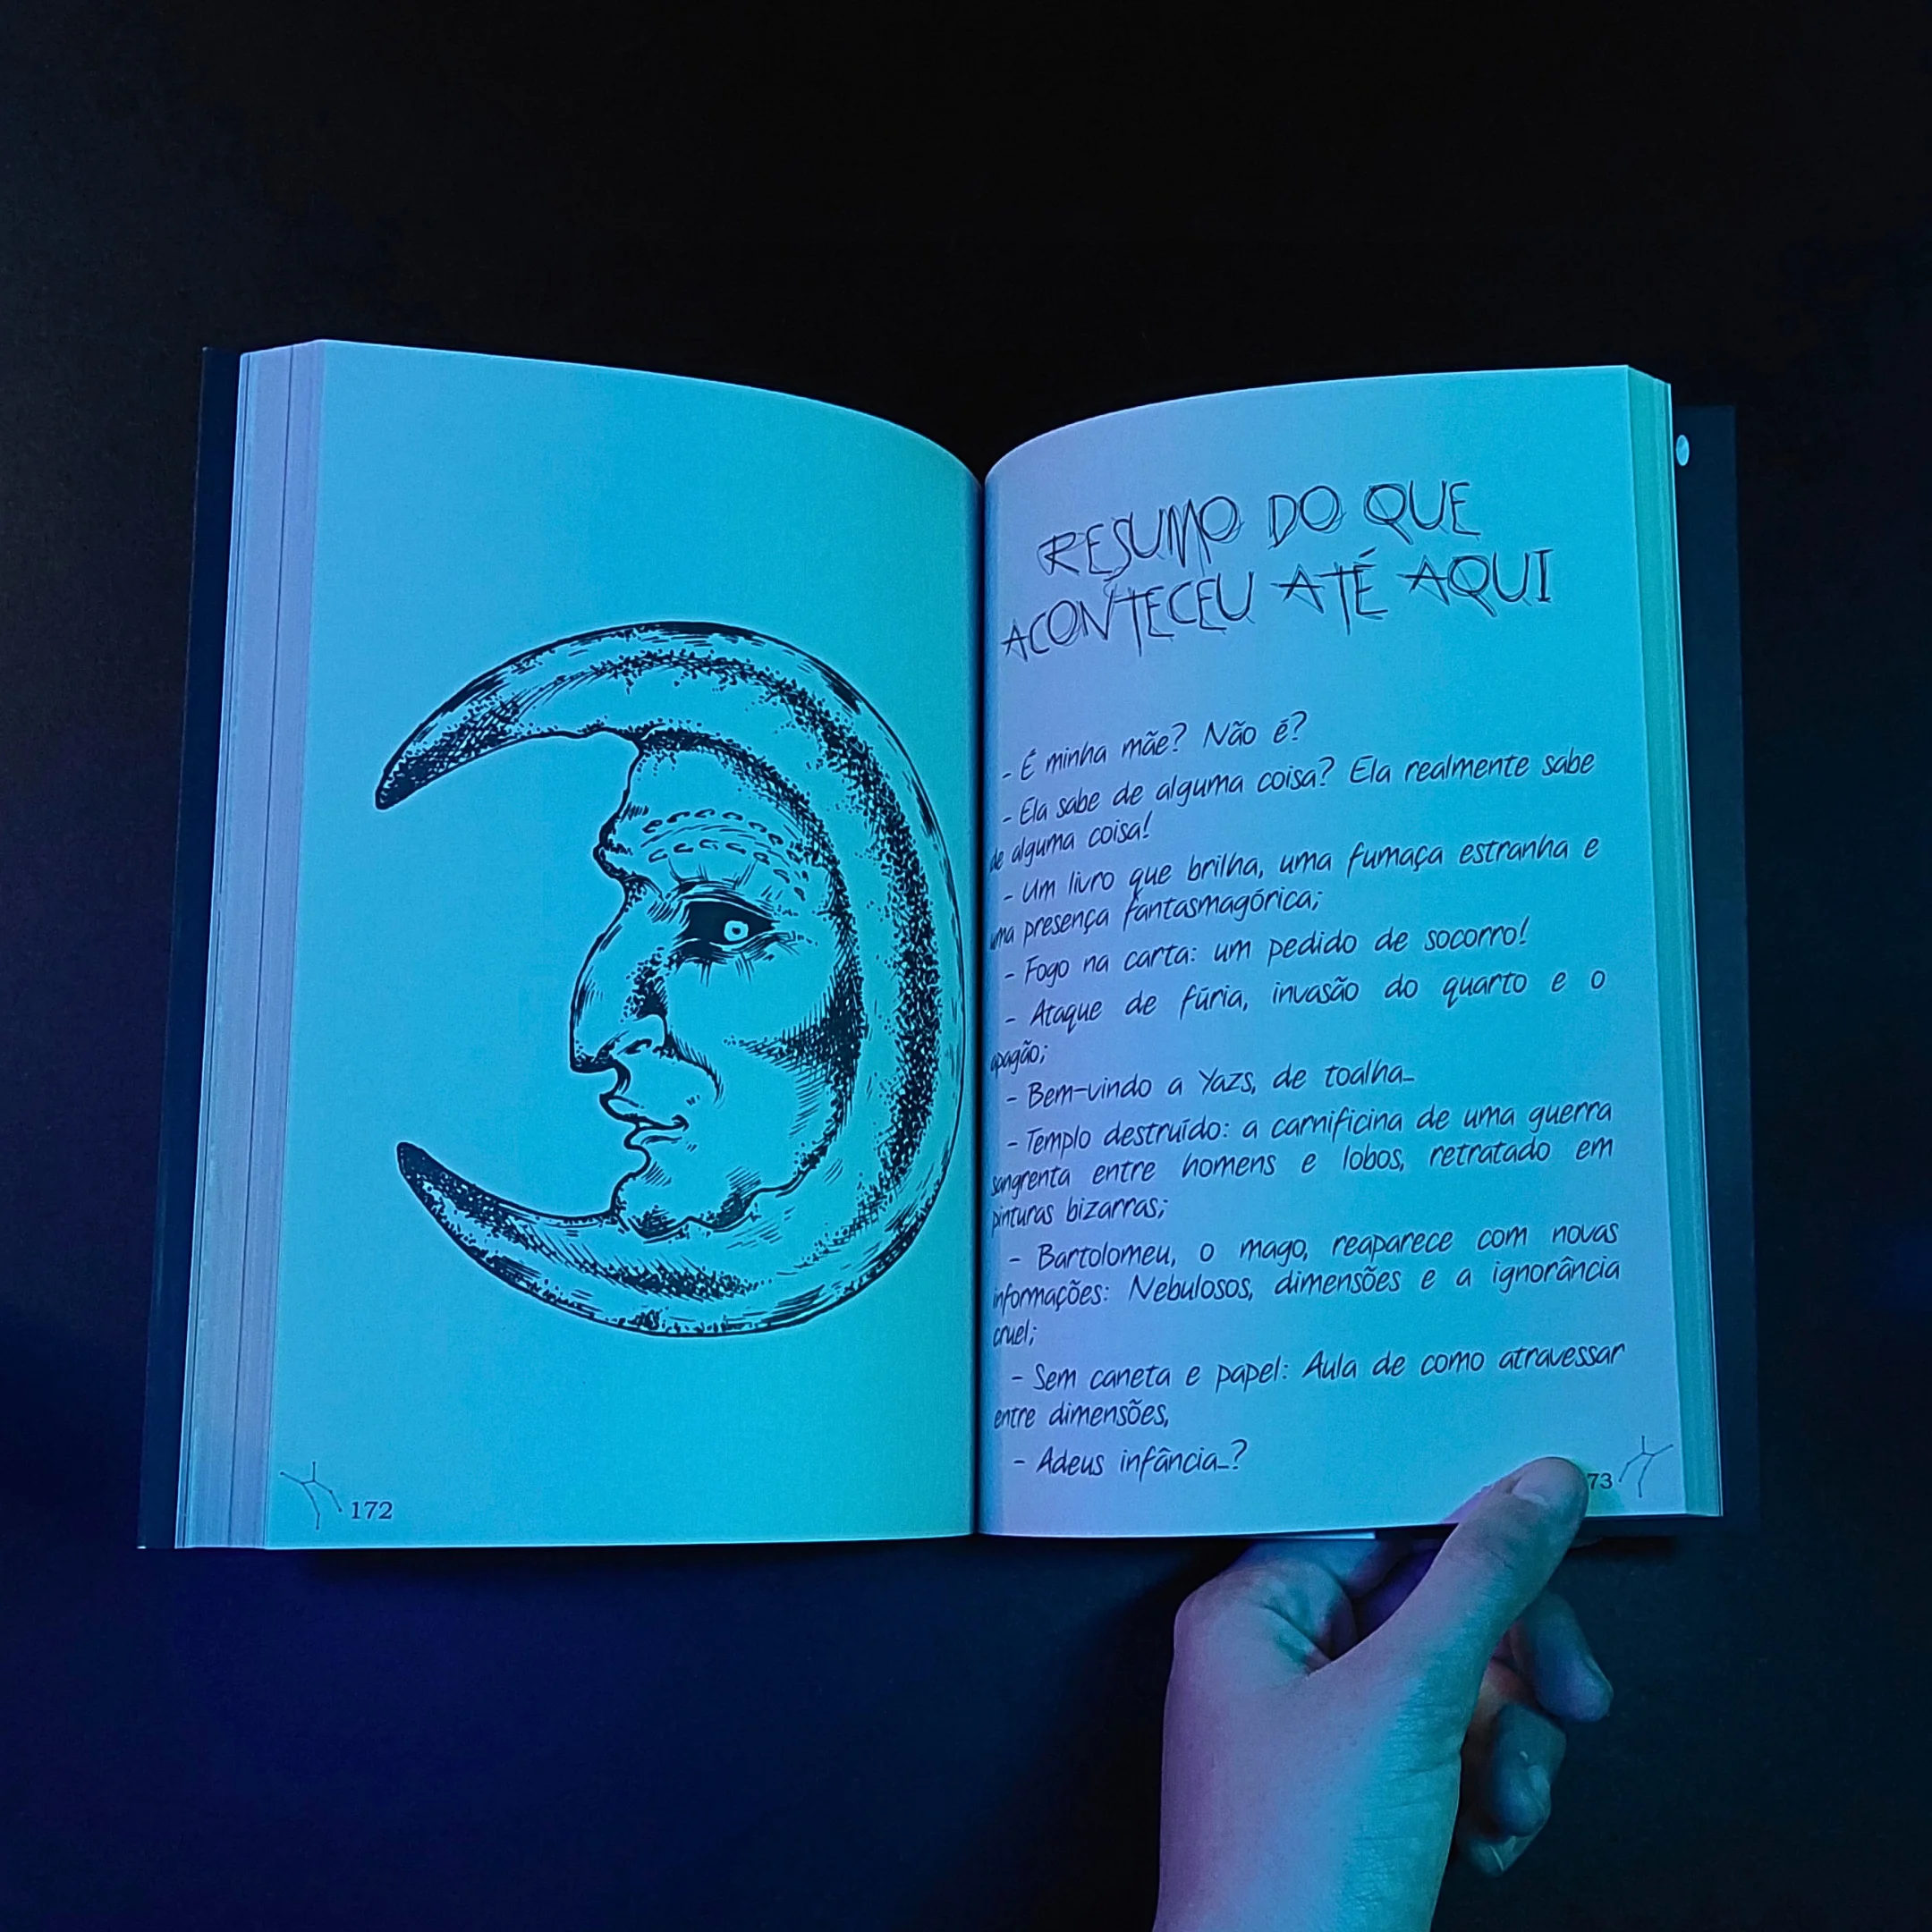 172
RESUMO DO QUE
ACONTECEU ATÉ AQUI
- É minha mãe? Não é?
- Ela sabe de alguma coisa? Ela realmente sabe
de alguma coisa!
- Um livro que brilha, uma fumaça estranha e
uma presença fantasmagórica;
- Fogo na carta: um pedido de socorro!
- Ataque de fúria, invasão do quarto e o
apagão;
- Bem-vindo a Yazs, de toalha...
- Templo destruído: a carnificina de uma guerra
sangrenta entre homens e lobos, retratado em
pinturas bizarras;
- Bartolomeu, o mago, reaparece com novas
informações: Nebulosos, dimensões e a ignorância
cruel;
- Sem caneta e papel: Aula de como atravessar
entre dimensões,
- Adeus infância...?
73